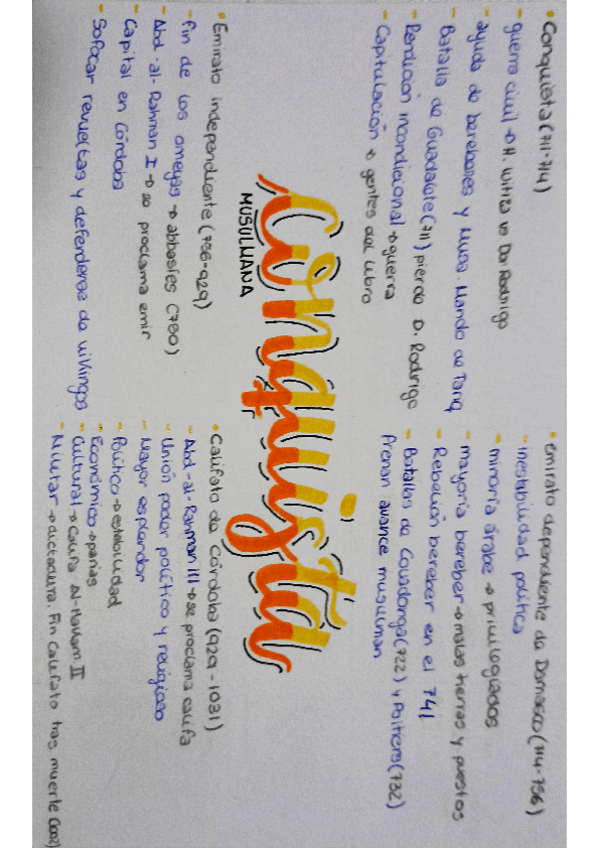 • Conquista (711-714)
- guerra civil → H. Witiza vs Don Rodrigo
- ayuda de bereberes y Musa. Mando de Tariq
- Batalla de Guadalete (711) pierde D. Rodrigo
- Rendición incondicional → guerra
- Capitulación → gentes del libro
• Emirato dependiente de Damasco (714-756)
- inestabilidad política
- minoría árabe → privilegiados
- mayoría bereber → malas tierras y puestos
- Rebelión bereber en el 741
- Batallas de Covadonga (722) y Poitiers (732)
Frenan avance musulman
Conquista
MUSULMANA
• Emirato independiente (756-929)
- fin de los omeyas → abbasíes (750)
- Abd-al-Rahman I → se proclama emir
- Capital en Córdoba
- Sofocar revueltas y defenderse de vikingos
• Califato de Córdoba (929-1031)
- Abd-al-Rahman III → se proclama califa
- Unión poder político y religioso
- Mayor esplendor
- Político → estabilidad
- Económico → parias
- Cultural → Califa Al-Hakam II
- Militar → dictadura. Fin Califato tras muerte (1002)